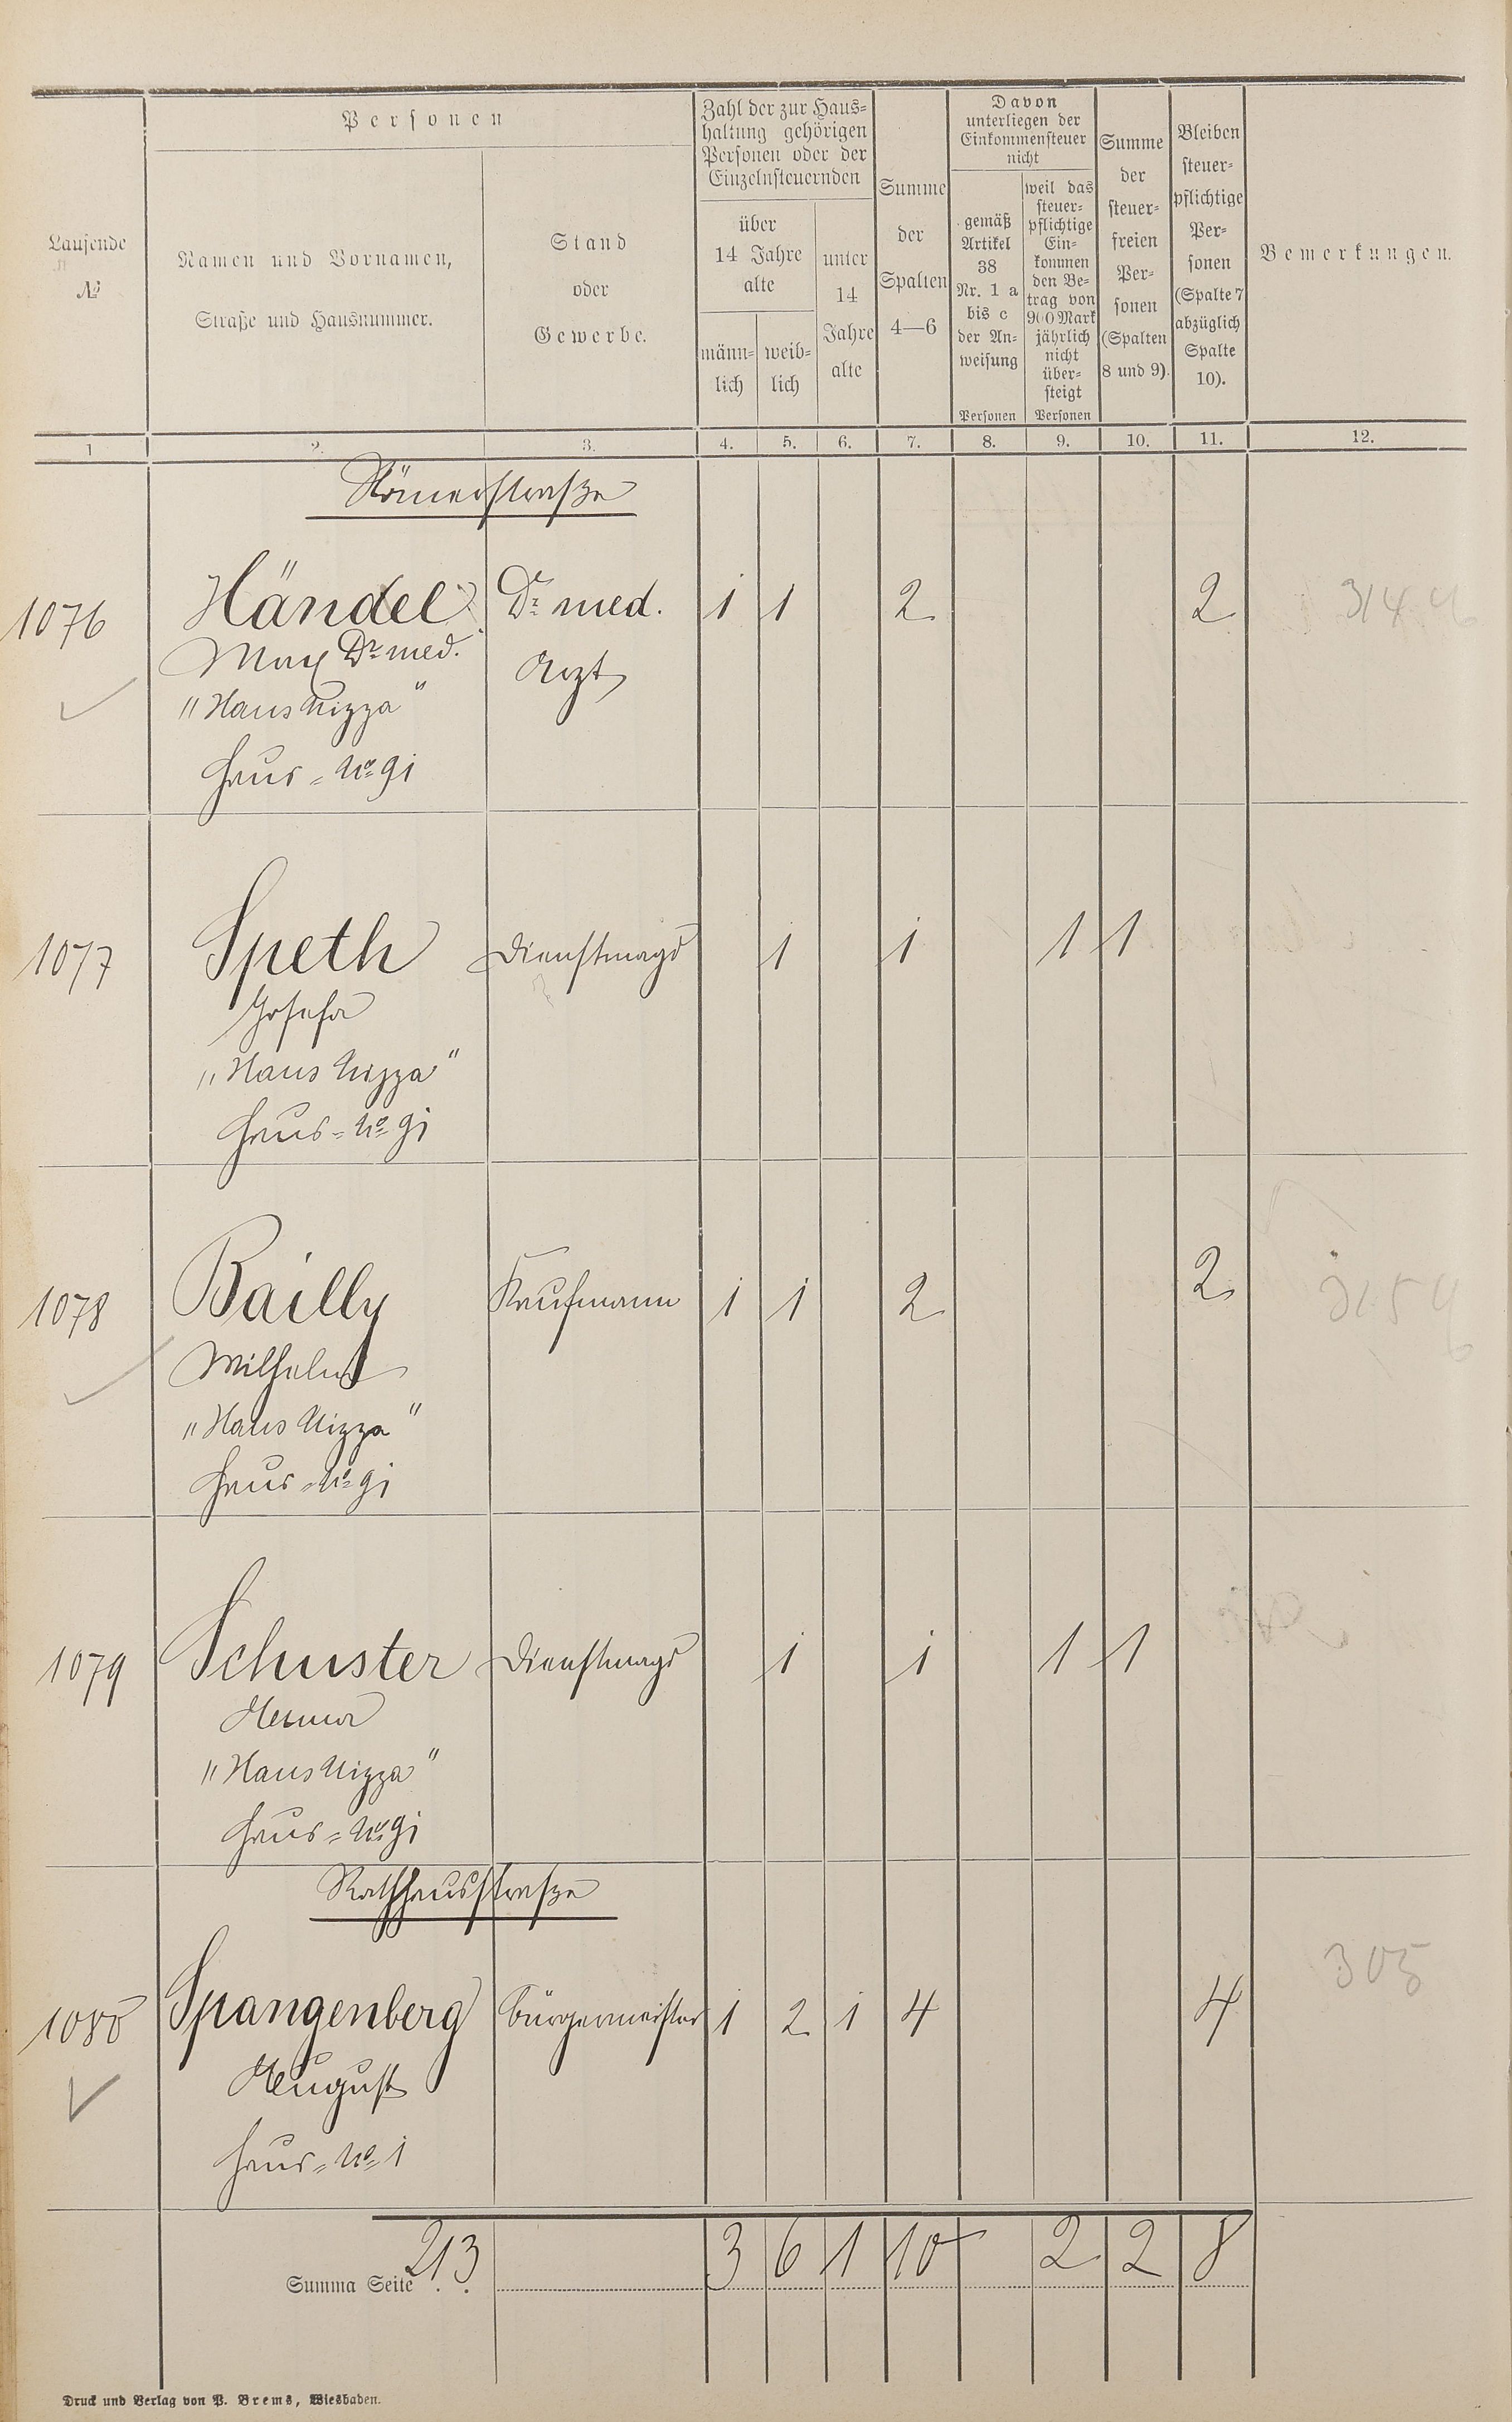 Personen
Laufende
№
Namen und Vornamen,
Straße und Hausnummer.
Stand
oder
Gewerbe.
Zahl der zur Haus-
haltung gehörigen
Personen oder der
Einzelnsteuernden
über
14 Jahre
alte
männ-
lich
weib-
lich
unter
14
Jahre
alte
Summe
der
Spalten
4—6
Davon
unterliegen der
Einkommensteuer
nicht
gemäß
Artikel
38
Nr. 1 a
bis c
der An-
weisung
Personen
weil das
steuer-
pflichtige
Ein-
kommen
den Be-
trag von
900 Mark
jährlich
nicht
über-
steigt
Personen
Summe
der
steuer-
freien
Per-
sonen
(Spalten
8 und 9).
Bleiben
steuer-
pflichtige
Per-
sonen
(Spalte 7
abzüglich
Spalte
10).
Bemerkungen.
1 2. 3. 4. 5. 6. 7. 8. 9. 10. 11. 12.
Römerstraße
1076 Händel Dr. med. 1 1 2 2 314
Max Dr. med. Arzt
"Haus Nizza"
Haus-No. 9i
1077 Speth Dienstmagd 1 1 1 1
Josefa
"Haus Nizza"
Haus-No. 9i
1078 Bailly Kaufmann 1 1 2 2 315
Wilhelm
"Haus Nizza"
Haus-No. 9i
1079 Schuster Dienstmagd 1 1 1 1
"Haus Nizza"
Haus-No. 9i
Rathhausstraße
1080 Spangenberg Bürgermeister 1 2 1 4 4 305
August
Haus-No. 1
Summa Seite 213 3 6 1 10 — 2 2 8
Druck und Verlag von P. Brems, Wiesbaden.